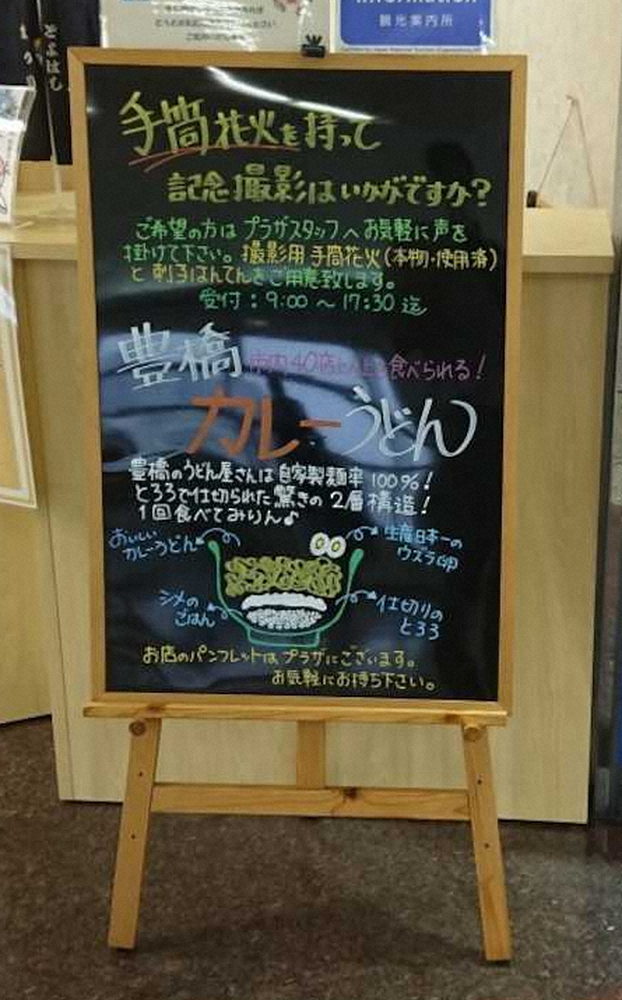 Information
観光案内所
手筒花火を持って
記念撮影はいかがですか?
ご希望の方は プラザスタッフへ お気軽に声を
掛けて下さい。撮影用 手筒花火(本物・使用済)
と 刺子はんてんをご用意致します。
受付:9:00 〜 17:30 迄
豊橋 市内40店 食べられる!
カレーうどん
豊橋のうどん屋さんは 自家製麺率 100%!
とろろで仕切られた 驚きの 2層構造!
1回食べてみりん♪
おいしい
カレーうどん
生産日本一の
ウズラ卵
シメの
ごはん
仕切りの
とろろ
お店のパンフレットは プラザにございます。
お気軽にお持ち下さい。